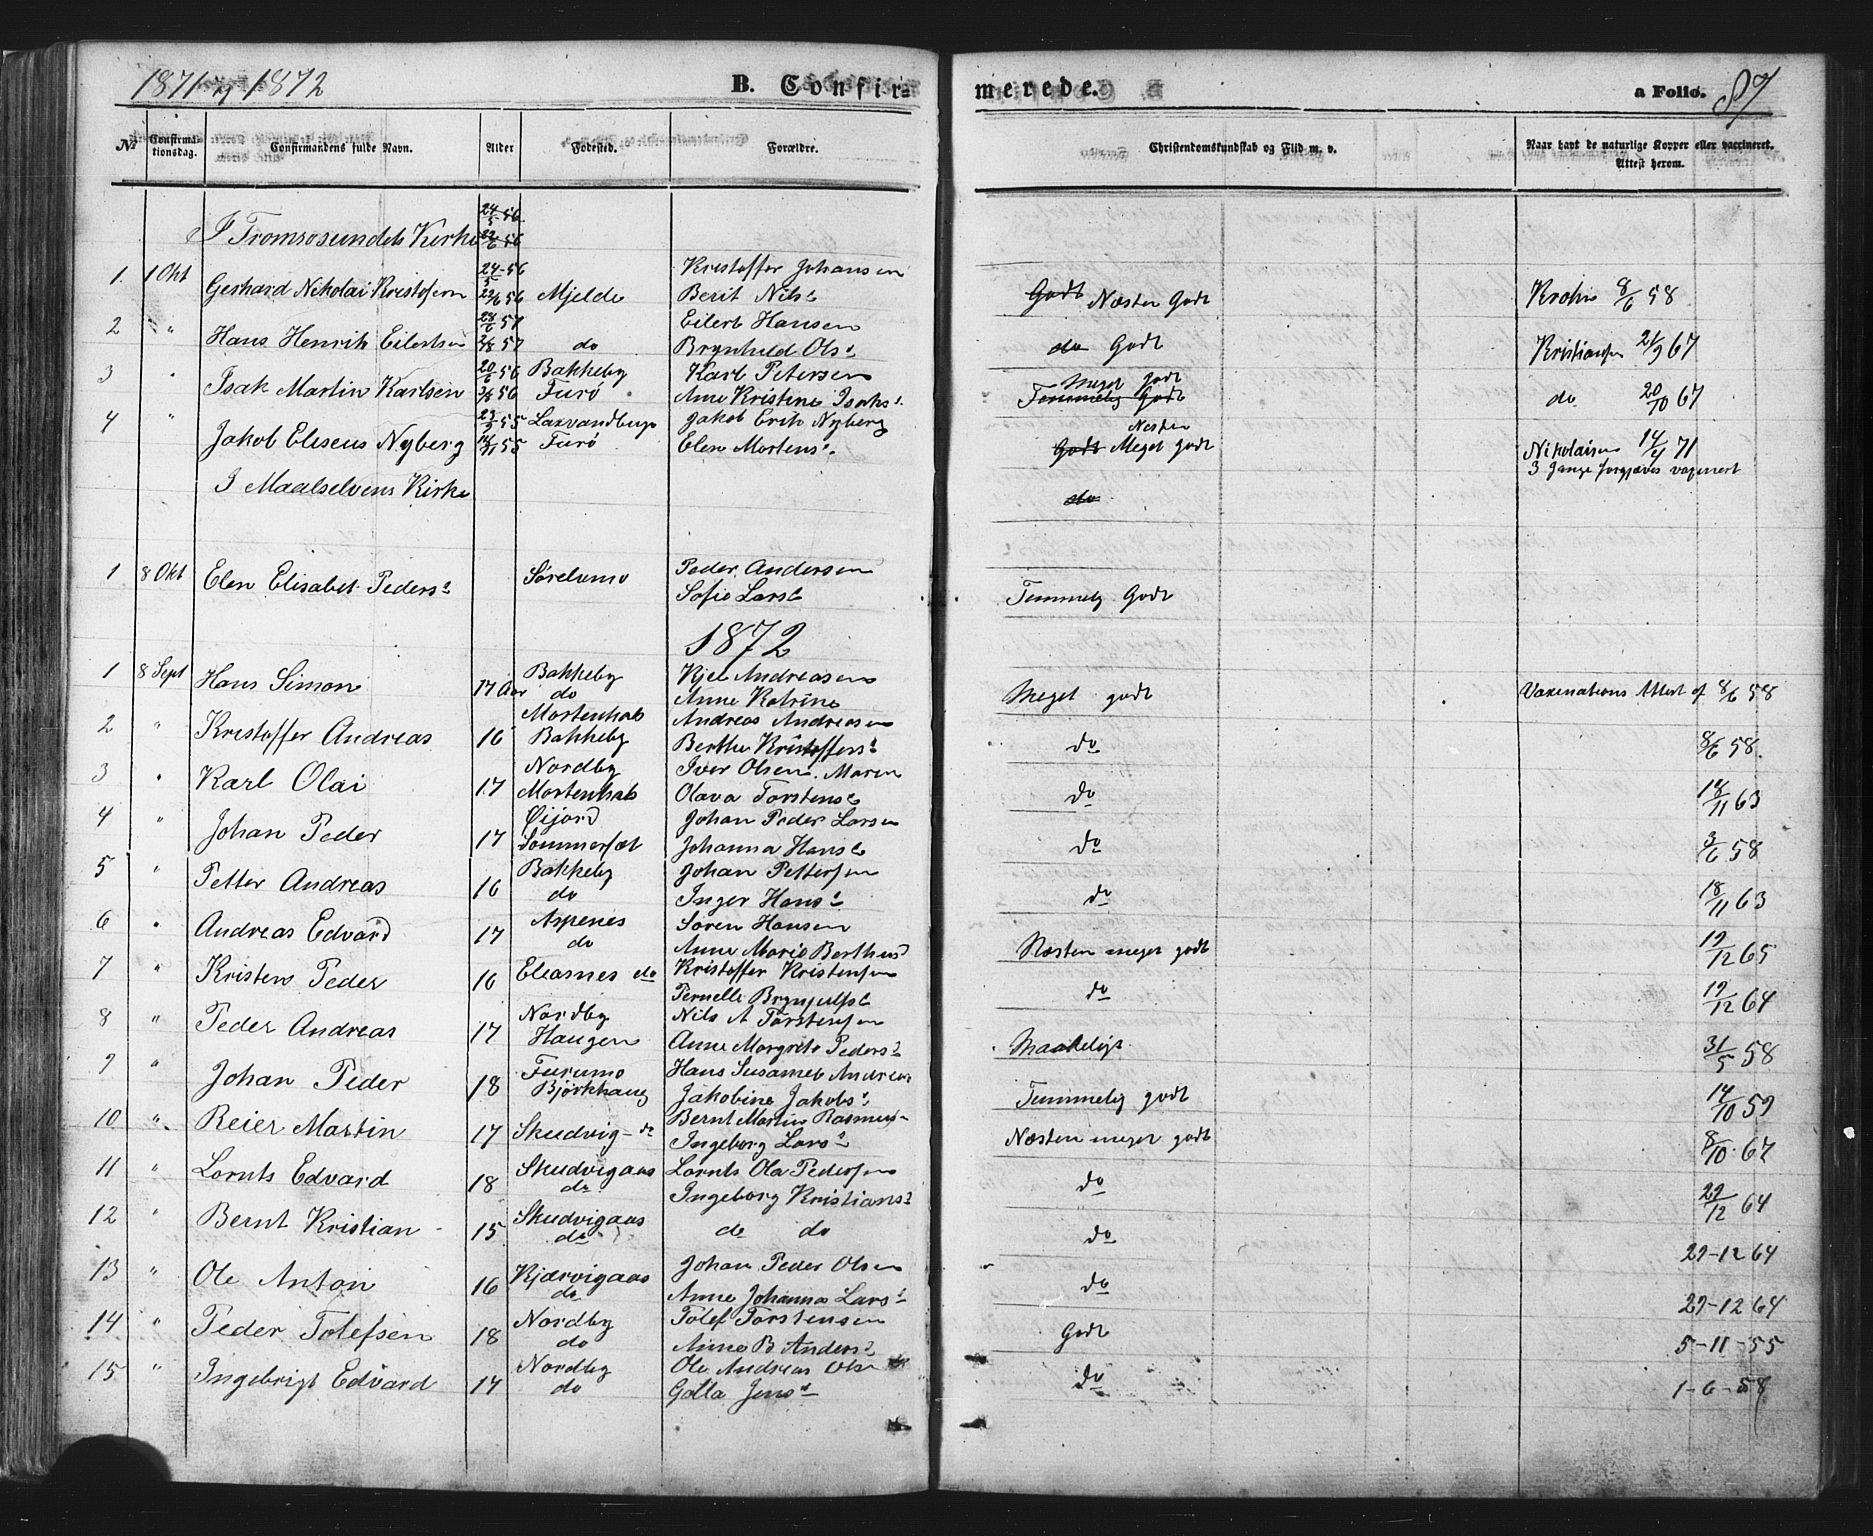 1871 og 1872
B. Confir-
merede.
a Folio. 87
No
Confirmationsdag.
Confirmandens fulde Navn.
Alder
Fødested.
Forældre.
Christendomskundskab og Flid m. v.
Naar havt de naturlige Kopper eller vaccineret. Attest herom.
24/5 56
I Tromsøsundets Kirke 22/6 56
1. 1 Okt 24/5 56 Kristoffer Johansen
Gerhard Nikolai Kristofersen 22/6 56 Mjelde Berit Nilsd Godt Næsten Godt Krohn 8/6 58
2 " 28/6 57 Eilert Hansen
Hans Henrik Eilertsen 2/8 57 do Brynhild Olsd do Godt Kristiansen 21/9 67
3 " 20/6 56 Bakkeby Karl Petersen Meget godt
Isak Martin Karlsen 3/8 56 Furø Ane Kristine Isaksd Temmelig Godt do 20/10 67
4 " 23/9 55 Laxvandbugt Jakob Erik Nyberg Næsten
Jakob Eliseus Nyberg 14/11 55 Furø Elen Mortensd Godt Meget godt Nikolaisen 14/4 71
3 Gange forgjæves vaxinert
I Maalselvens Kirke do
1 8 Okt Elen Elisabet Pedersd Sørelvmo Peder Andersen
Sofie Larsd Temmelig Godt
1872
1 8 Sept Hans Simon 17 Aar Bakkeby Kjel Andreasen
do Anne Katrine Meget godt Vaxinations Attest af 8/6 58
2 " Kristoffer Andreas 16 Mortenhals Andreas Andreasen
Bakkeby Berthe Kristoffersd do 8/6 58.
3 " Karl Olai 17 Nordby Iver Olsen. Maren
Mortenhals Olava Torstensd do 18/11 63
4 " Johan Peder 17 Øijord Johan Peder Larsen
Sommerset Johanna Hansd do 3/6 58
5 " Petter Andreas 16 Bakkeby Johan Pettersen
do Inger Hansd do 18/11 63
6 " Andreas Edvard 17 Aspenes Søren Hansen
do Anne Marie Berthusd Næsten meget godt 19/12 65
7 " Kristen Peder 16 Eleasnes do Kristoffer Kristensen
Pernelle Brynjulfsd do 19/12 64
8 " Peder Andreas 17 Nordby Nils A Torstensen
Haugen Anne Margrete Pedersd Maadeligt 31/5 58
9 " Johan Peder 18 Furumo Hans Susamel Andreas
Bjørkhaug Jakobine Jakobsd Temmelig godt 14/10 59
10 " Reier Martin 17 Skudvig - do Bernt Martin Rasmus-
Ingeborg Larsd Næsten meget godt 8/10 67
11 " Lornts Edvard 18 Skudvigaas Lornts Ola Pedersen
do Ingeborg Kristiansd do 29/12 64
12 " Bernt Kristian 15 Skudvigaas
do do do do 29-12 64
13 " Ole Anton 16 Kjærvigaas Johan Peder Olsen
do Anne Johanna Larsd do 29-12 64
14 " Peder Tolefsen 18 Nordby Tolef Torstensen
do Anne B. Andersd Godt 5-11-55
15 " Ingebrigt Edvard 14 Nordby Ole Andreas Olsen
do Golla Jensd do 1-6-58